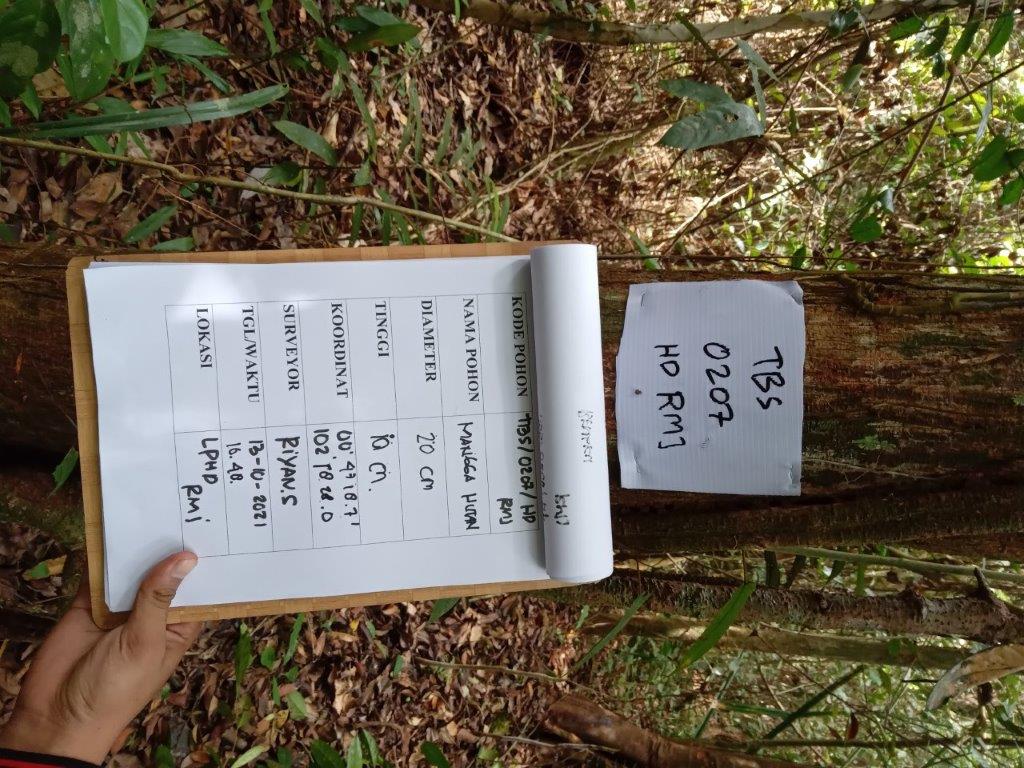 TBS
0207
HD RMJ
KODE POHON TBS/0207/HD
RMJ
NAMA POHON MANGGA HUTAN
DIAMETER 20 CM
TINGGI 10 m.
KOORDINAT 00° 47 18.7'
102° 28.0
SURVEYOR RIYAN.S
TGL/WAKTU 13-10-2021
16.48.
LOKASI LPHD
RMJ